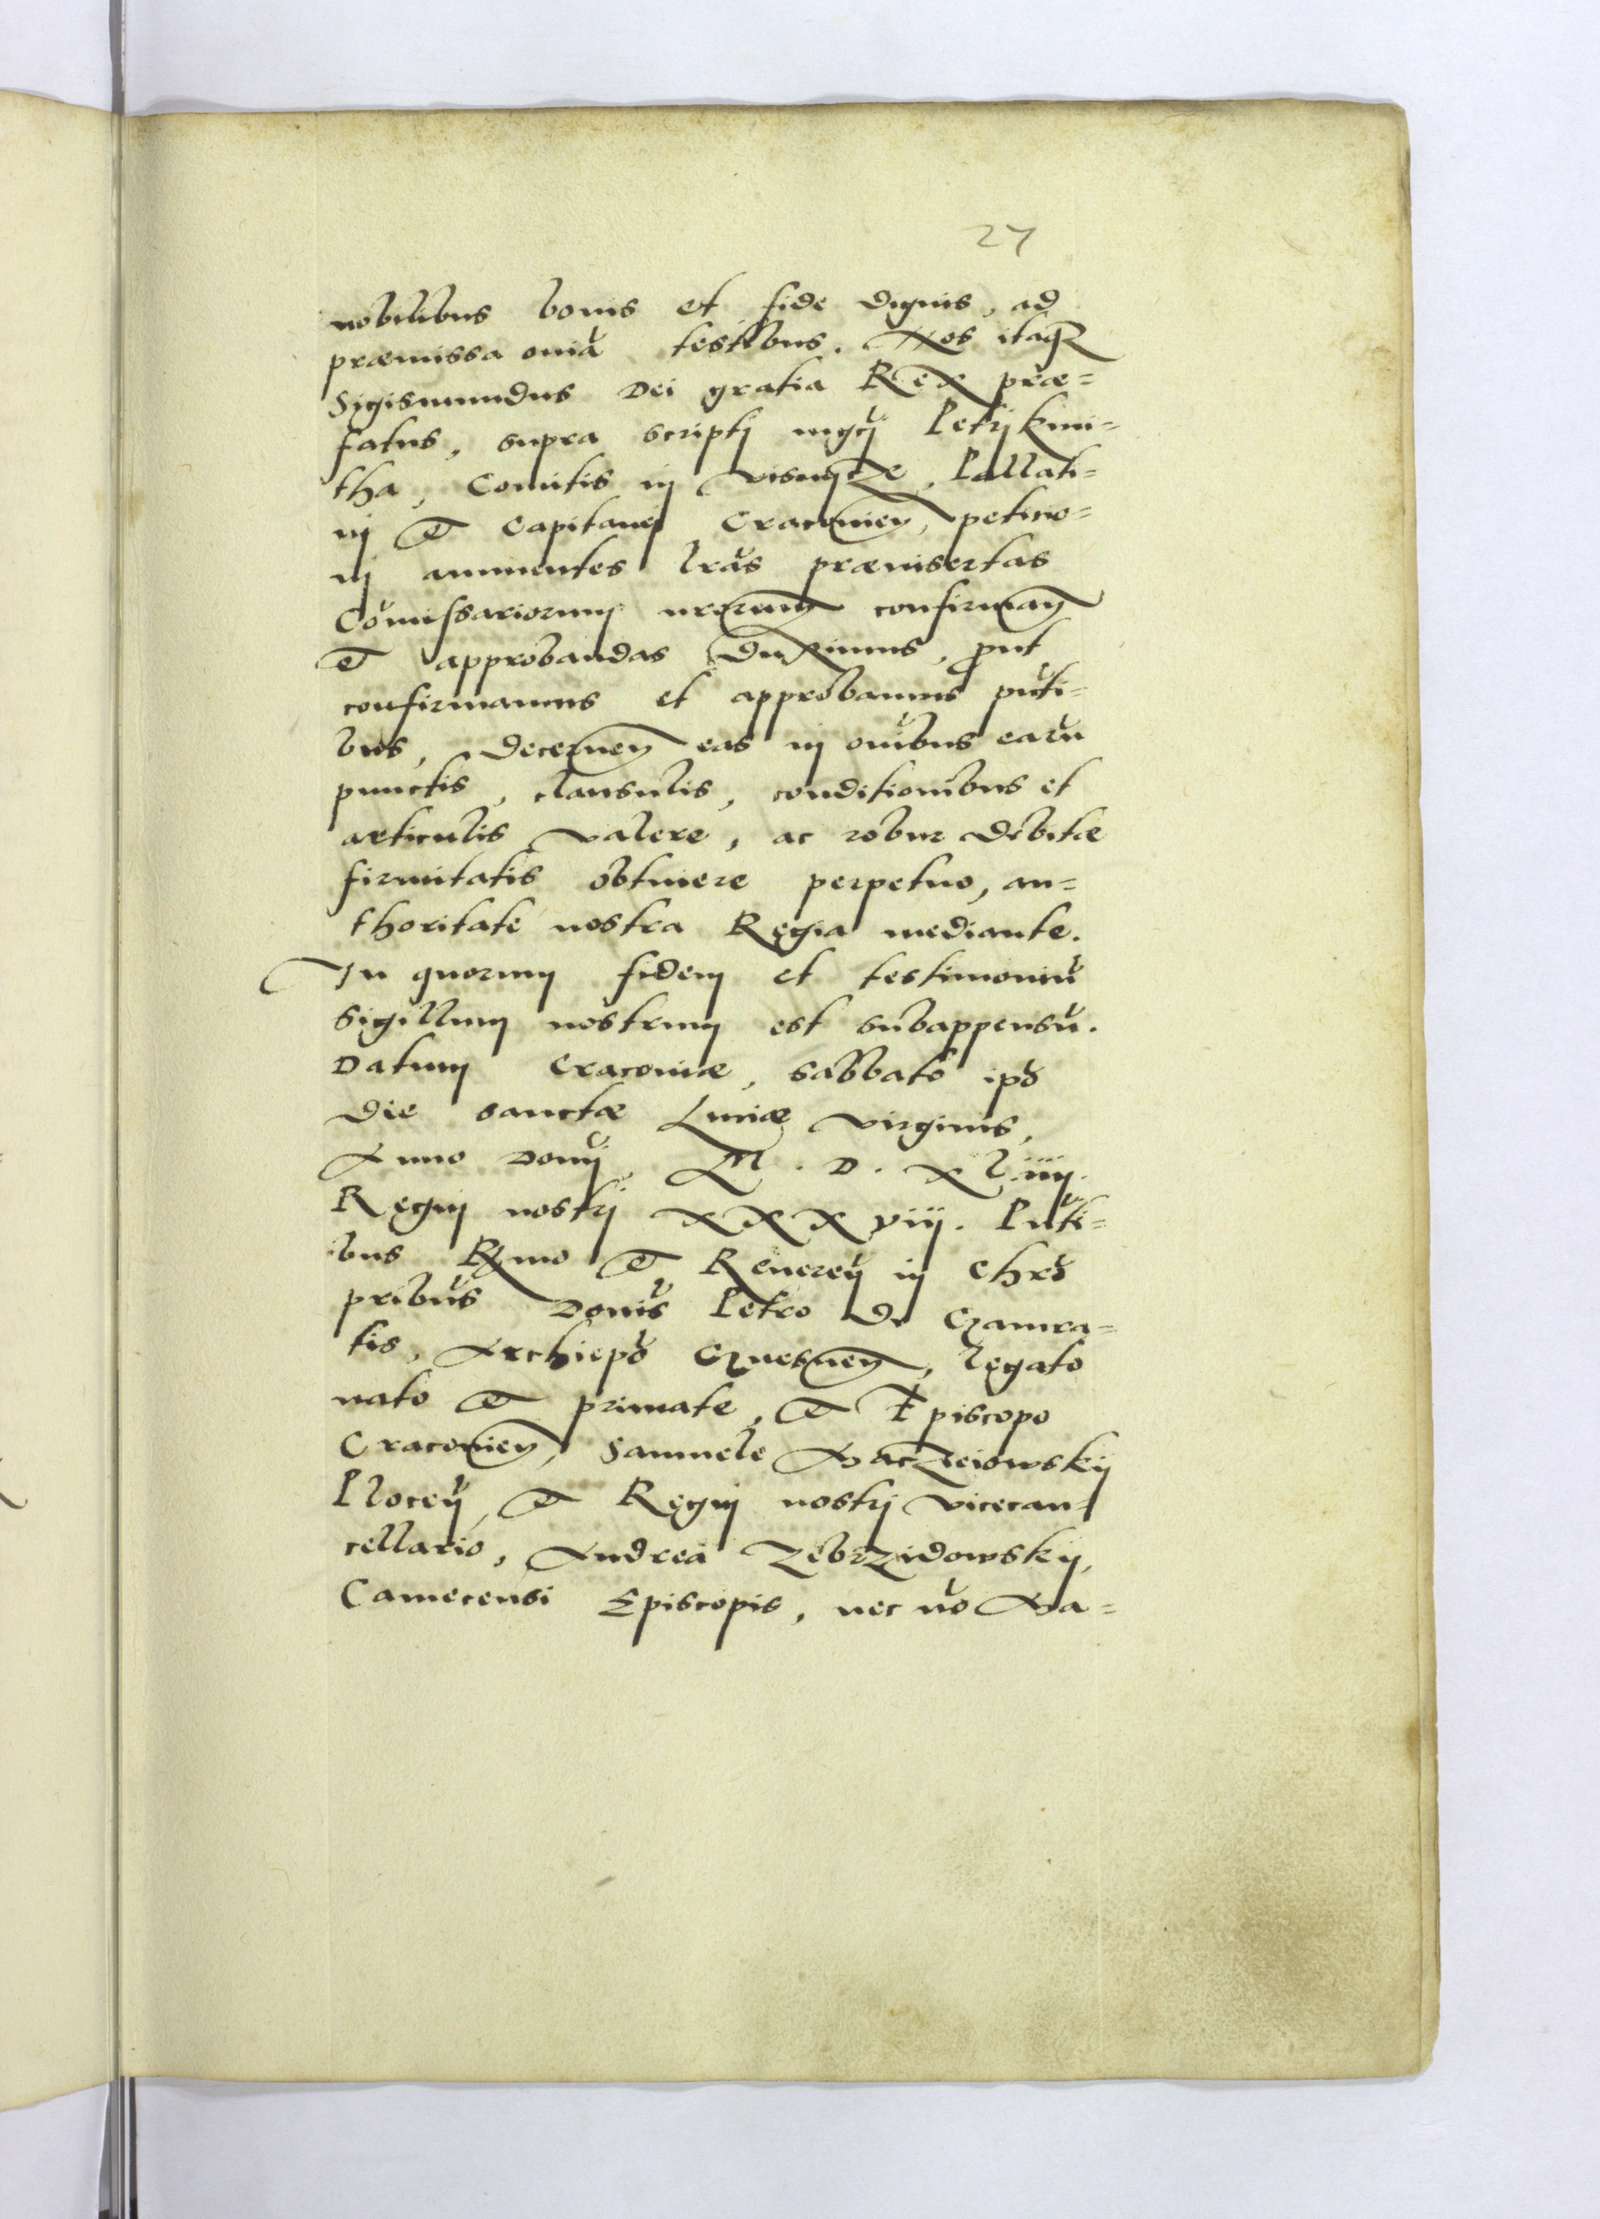 27
nobilibus bonis et fide dignis, ad
præmissa om̃ia testibus. Nos itaqꝫ
Sigismundus Dei gratia Rex præ=
fatus, supra scriptj mgcj Petrj Kmi=
tha, Comitis in Visnycze, Pallati=
nj et Capitanej Cracouien, peticio=
nj annuentes lr̃as præinsertas
Com̃issariorum nr̃orum confirman
et approbandas duximus, ꝓut
confirmamus et approbamus pñti=
bus, decernen eas in om̃ibus earũ
punctis, clausulis, conditionibus et
articulis valere, ac robur debitæ
firmitatis obtinere perpetuo, au=
thoritate nostra Regia mediante.
In quorum fidem et testimoniũ
Sigillum nostrum est subappensũ.
Datum Cracouiæ, sabbato ip̃o
die sanctæ Luciæ virginis,
Anno Domj M. D. xliiij.
Regnj nostrj xxxviij. Pñti=
bus Rẽmo et Reueren in Chrõ
prĩbus Dom̃is Petro de Gamra=
tis, Archiep̃o Gnesnen, legato
nato et primate, et Episcopo
Cracouien, Samuele Maczieiowskij
Plocen, et Regnj nostrj vicecan=
cellario, Andrea Zebrzidowskij,
Camecensi Episcopis, nec nõ Ma=